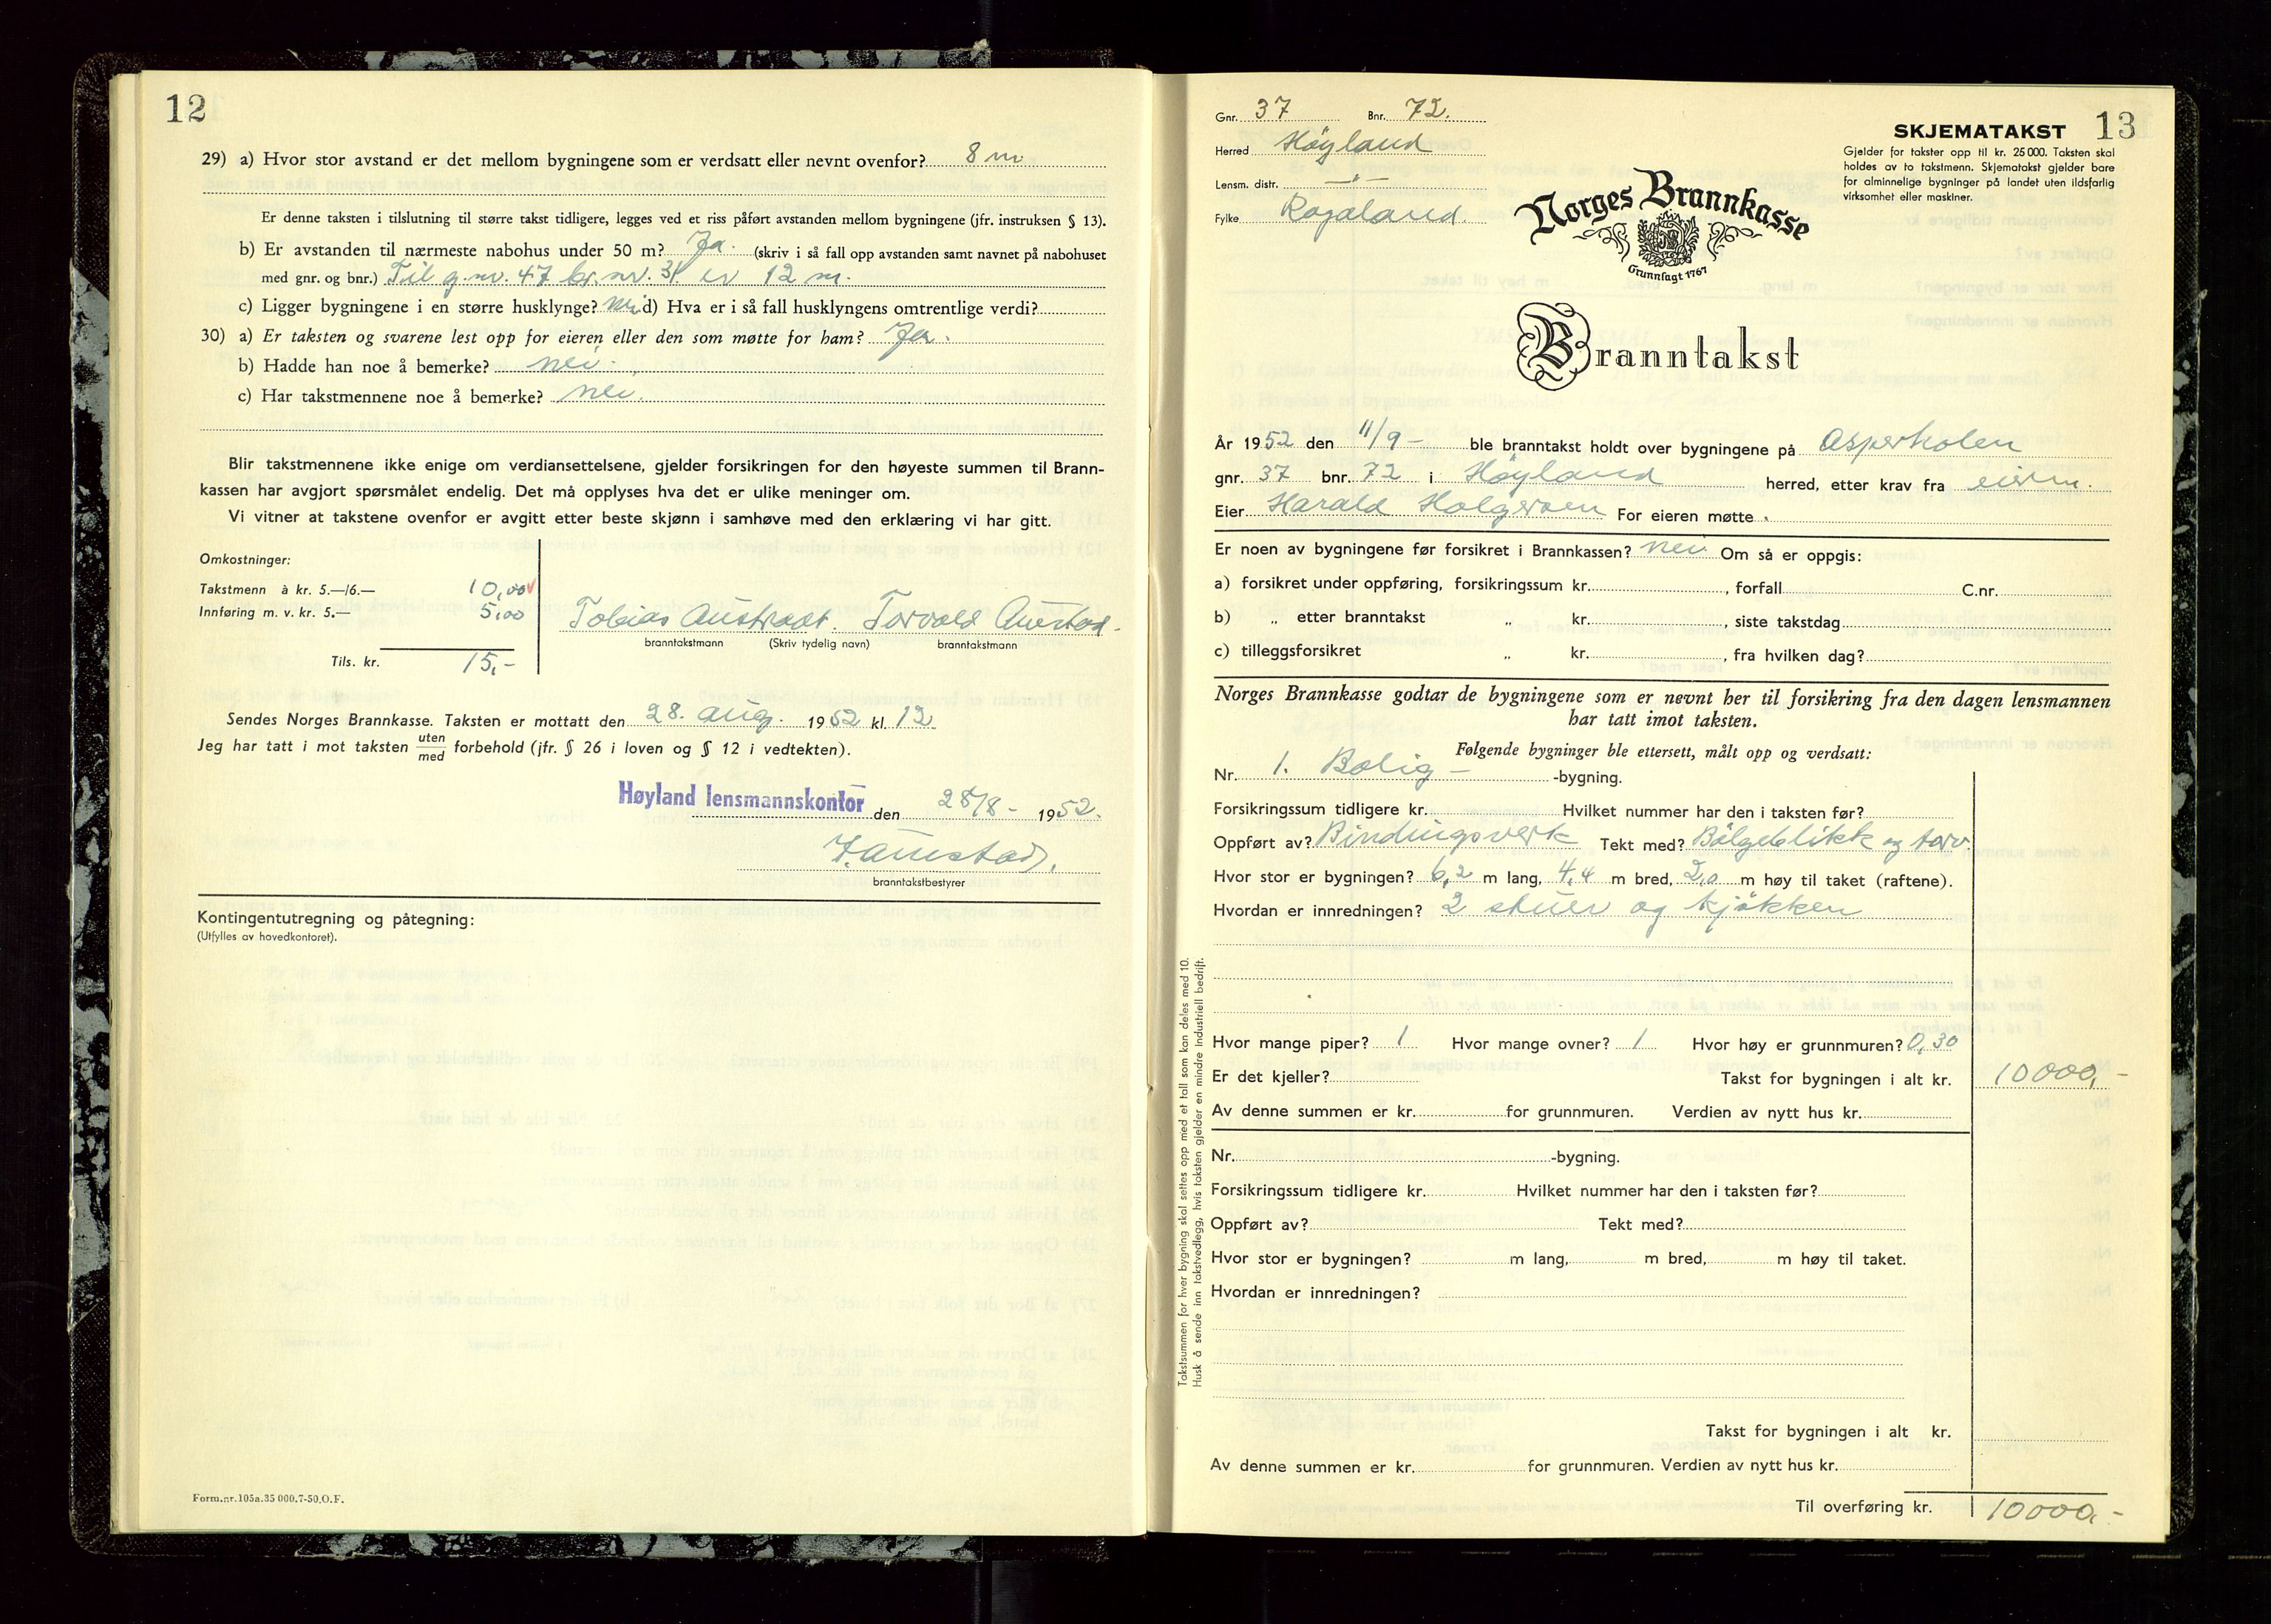 12
29) a) Hvor stor avstand er det mellom bygningene som er verdsatt eller nevnt ovenfor? 8 m
Er denne taksten i tilslutning til større takst tidligere, legges ved et riss påført avstanden mellom bygningene (jfr. instruksen § 13).
b) Er avstanden til nærmeste nabohus under 50 m? Ja. (skriv i så fall opp avstanden samt navnet på nabohuset
med gnr. og bnr.) Til g.nr. 47 br.nr. 31 er 12 m.
c) Ligger bygningene i en større husklynge? nei d) Hva er i så fall husklyngens omtrentlige verdi?
30) a) Er taksten og svarene lest opp for eieren eller den som møtte for ham? Ja.
b) Hadde han noe å bemerke? nei.
c) Har takstmennene noe å bemerke? nei.
Blir takstmennene ikke enige om verdiansettelsene, gjelder forsikringen for den høyeste summen til Brann-
kassen har avgjort spørsmålet endelig. Det må opplyses hva det er ulike meninger om.
Vi vitner at takstene ovenfor er avgitt etter beste skjønn i samhøve med den erklæring vi har gitt.
Omkostninger:
Takstmenn à kr. 5.—/6.— 10,00
Innføring m. v. kr. 5.— 5,00
Tobias Austradt. Torvald Austad.
branntakstmann (Skriv tydelig navn) branntakstmann
Tils. kr. 15,-
Sendes Norges Brannkasse. Taksten er mottatt den 28. aug. 1952 kl. 12
Jeg har tatt i mot taksten uten/med forbehold (jfr. § 26 i loven og § 12 i vedtekten).
Høyland lensmannskontor den 28/8- 1952.
branntakstbestyrer
Kontingentutregning og påtegning:
(Utfylles av hovedkontoret).
Form.nr.105a.35 000.7-50.O.F.
Gnr. 37 Bnr. 72.
SKJEMATAKST 13
Herred Høyland
Gjelder for takster opp til kr. 25 000. Taksten skal
holdes av to takstmenn. Skjematakst gjelder bare
for alminnelige bygninger på landet uten ildsfarlig
virksomhet eller maskiner.
Lensm. distr. —„—
Fylke Rogaland.
Norges Brannkasse
Grunnlagt 1767
Branntakst
År 1952 den 11/9- ble branntakst holdt over bygningene på Asperholen
gnr. 37 bnr. 72 i Høyland herred, etter krav fra eieren.
Eier Harald Holgersen For eieren møtte
Er noen av bygningene før forsikret i Brannkassen? nei. Om så er oppgis:
a) forsikret under oppføring, forsikringssum kr. , forfall C.nr.
b) „ etter branntakst „ kr. , siste takstdag
c) tilleggsforsikret „ kr. , fra hvilken dag?
Norges Brannkasse godtar de bygningene som er nevnt her til forsikring fra den dagen lensmannen
har tatt imot taksten.
Følgende bygninger ble ettersett, målt opp og verdsatt:
Nr. 1. Bolig- -bygning.
Forsikringssum tidligere kr. Hvilket nummer har den i taksten før?
Oppført av? Bindingsverk Tekt med? Bølgeblikk og torv.
Hvor stor er bygningen? 6,2 m lang, 4,4 m bred, 2,0 m høy til taket (raftene).
Hvordan er innredningen? 2 stuer og kjøkken
Hvor mange piper? 1 Hvor mange ovner? 1 Hvor høy er grunnmuren? 0,30
Er det kjeller? Takst for bygningen i alt kr. 10000,-
Av denne summen er kr. for grunnmuren. Verdien av nytt hus kr.
Nr. -bygning.
Forsikringssum tidligere kr. Hvilket nummer har den i taksten før?
Oppført av? Tekt med?
Hvor stor er bygningen? m lang, m bred, m høy til taket.
Hvordan er innredningen?
Takst for bygningen i alt kr.
Av denne summen er kr. for grunnmuren. Verdien av nytt hus kr.
Til overføring kr. 10000,-
Takstsummen for hver bygning skal settes opp med et tall som kan deles med 10.
Husk å sende inn takstvedlegg, hvis taksten gjelder en mindre industriell bedrift.